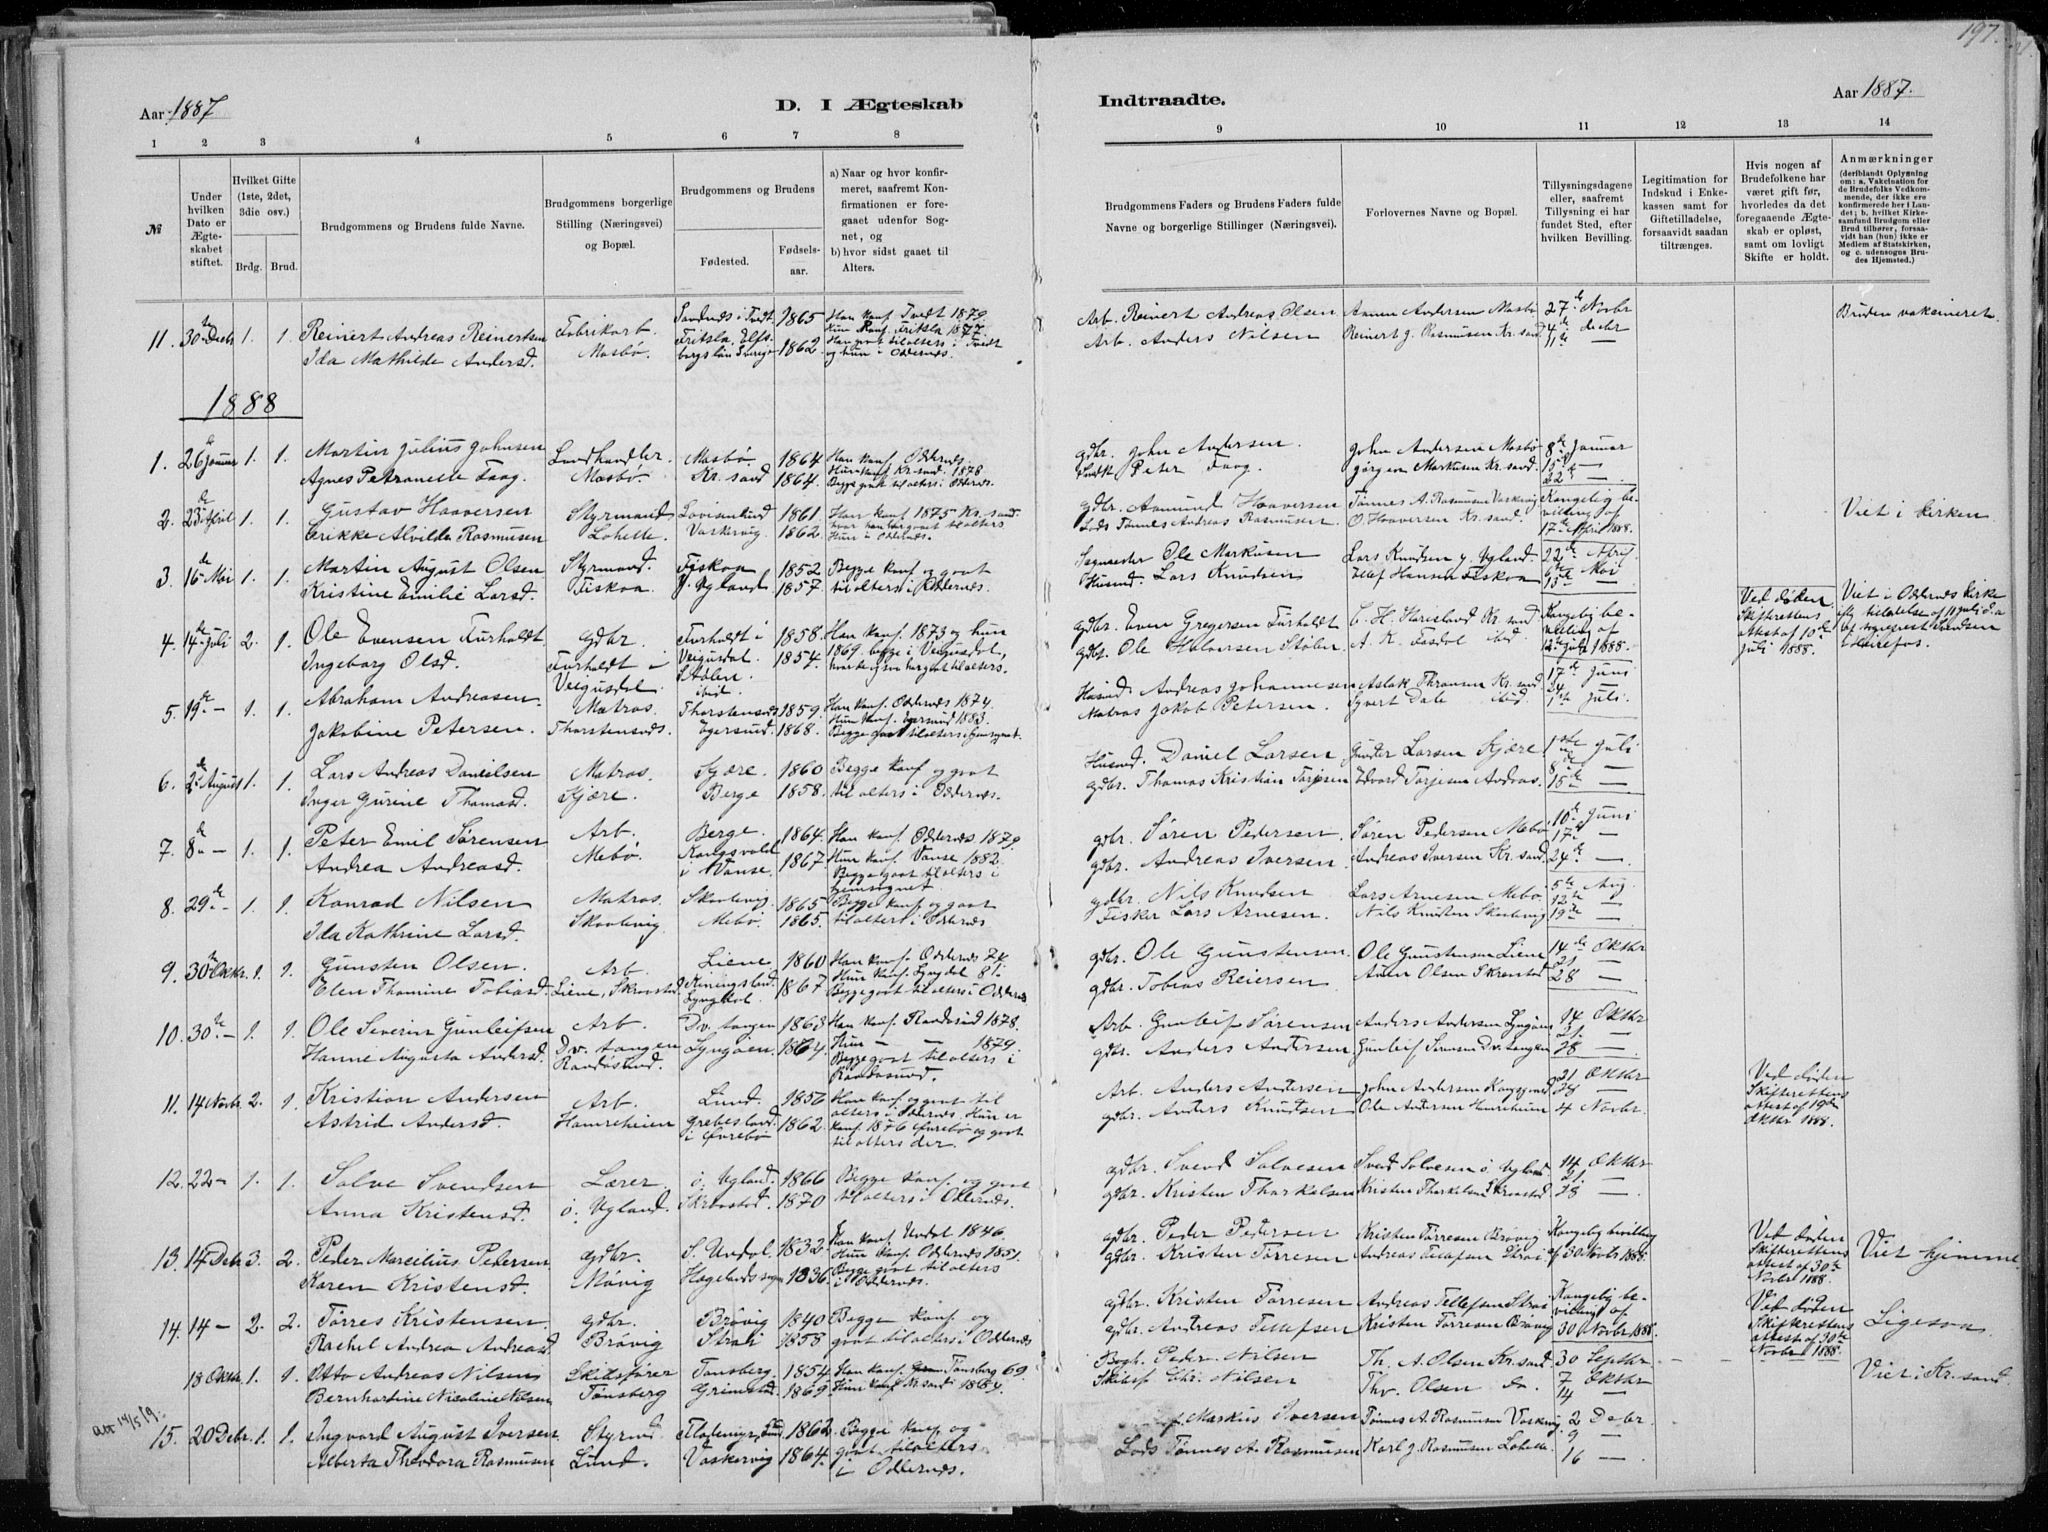 197.
Aar 1887
D. I Ægteskab
Indtraadte.
Aar 1887.
1 2 3 4 5 6 7 8
9 10 11 12 13 14
№
Under hvilken Dato er Ægteskabet stiftet.
Hvilket Gifte (1ste, 2det, 3die osv.)
Brdg. Brud.
Brudgommens og Brudens fulde Navne.
Brudgommens borgerlige Stilling (Næringsvei) og Bopæl.
Brudgommens og Brudens
Fødested.
Fødselsaar.
a) Naar og hvor konfirmeret, saafremt Konfirmationen er foregaaet udenfor Sognet, og
b) hvor sidst gaaet til Alters.
Brudgommens Faders og Brudens Faders fulde Navne og borgerlige Stillinger (Næringsvei).
Forlovernes Navne og Bopæl.
Tillysningsdagene eller, saafremt Tillysning ei har fundet Sted, efter hvilken Bevilling.
Legitimation for Indskud i Enkekassen samt for Giftetilladelse, forsaavidt saadan tiltrænges.
Hvis nogen af Brudefolkene har været gift før, hvorledes da det foregaaende Ægteskab er opløst, samt om lovligt Skifte er holdt.
Anmærkninger (deriblandt Oplysning om: a. Vakcination for de Brudefolks Vedkommende, der ikke ere konfirmerede her i Landet; b. hvilket Kirkesamfund Brudgom eller Brud tilhører, forsaavidt han (hun) ikke er Medlem af Statskirken, og c. udensogns Brudes Hjemsted.)
11. 30te Decbr 1. 1. Reinert Andreas Reinertsen Fabrikarb. 1865 Han konf. Tvedt 1879.
Ida Mathilde Andersd. Mosbø. Fritsla, Elfsborgs län Sverige 1862 Hun konf. Fritsla 1877.
Arb. Reinert Andreas Olsen Anders Andersen Mosbø 27de Novbr
Arb. Anders Nilsen Reinert J. Rasmussen Kr.sand. 4de Decbr
Bruden vaksineret.
1888
1. 26de Januar 1. 1. Martin Julius Johnsen Landhandler Mosbø. 1864 Han konf. Oddernes.
Agnes Petronelle Faag. Mosbø. Kr.sand 1864. Hun konf. Kr.sand. 1878
Begge gaat tilalters i Oddernes.
gdbr. John Andersen. John Andersen Mosbø 8de Januar
Peter Faag. Jørgen Markusen Kr.sand. 15de —
22de —
2. 23de April 1. 1. Gustav Haaversen Styrmand Lovisenlund 1861 Han konf. 1875 Kr.sand.
Erikke Alvilde Rasmusen Lohelle. Vaskervig 1862. hvor han har gaat tilalters
Hun i Oddernes.
gdbr. Aamund Haaversen Tønnes A. Rasmusen Vaskervig Kongelig be-
Lods Tønnes Andreas Rasmusen. O. Haaversen Kr.sand. villing af
17de April 1888.
Viet i kirken
3. 16de Mai 1. 1. Martin August Olsen Styrmand. Fiskaa 1852 Begge konf og gaat
Kristine Emilie Larsd. Fiskaa. Y. Vgland 1857. tilalters i Oddernes.
Ole Markusen Lars Knudsen y. Vgland. 22de April
Husmd. Lars Knudsen Ellef Hansen Fiskaa 6te Mai
13de —
4. 14de Juli 2. 1. Ole Evensen Furholdt gdbr. Furholdt i 1858. Han konf. 1873 og hun
Ingeborg Olsd. Furholdt i Veigusdal. 1854. 1869. begge i Veigusdal,
Veigusdal Stølen ibid. hvor begge har gaat tilalters.
gdbr. Even Gregersen Furholdt Kongelig be-
gdbr. Ole Halvorsen Stølen A. K. Aasdal ibid. villing af
12te Juli 1888.
Ved døden
Skifterettens
attest af 10de
juli 1888.
Viet i Oddernes kirke
5. 19de — 1. 1. Abraham Andreasen Matros. Thorstensnes 1859. Han konf. Oddernes 1874.
Jakobine Petersen. Thorstensnes. Egersund. 1868. Hun konf. Egersund 1883.
Husmd. Andreas Johannesen Aslak Thronsen Kr.sand 17de Juni
Matros Jakob Petersen. Syvert Dale ibid. 24de —
1ste Juli.
6. 2den August 1. 1. Lars Andreas Danielsen Matros. Kjære. 1860 Begge konf og gaat
Inger Gurine Thomasd. Kjære. Berge 1858. tilalters i Oddernes.
Husmd. Daniel Larsen Gunder Larsen Kjære. 1ste Juli
gdbr. Thomas Kristian Torjesen Edvard Torjesen Andaas. 8de —
15de —
7. 8de — 1. 1. Peter Emil Sørensen Arb. Berge. 1864. Han konf. Oddernes 1879.
Andrea Andreasd. Mebø. Kongsvold i Vanse. 1867. Hun konf. Vanse 1882.
Begge gaat tilalters i
hjemsognet.
gdbr. Søren Pedersen Søren Pedersen Mebø 10de Juni
gdbr. Andreas Iversen Andreas Iversen Kr.sand. 17de —
24de —
8. 29de — 1. 1. Konrad Nilsen Matros. Skaalevig. 1865 Begge konf og gaat
Ida Kathrine Larsd. Skaalevig. Mebø. 1865. tilalters i Oddernes
gdbr. Nils Knudsen Lars Arnesen Mebø. 5te Aug.
Fisker Lars Arnesen. Nils Knudsen Skaalevig 12te —
19de —
9. 30te Oktbr. 1. 1. Gunsten Olsen. Arb. Liene 1860 Han konf. Oddernes 74
Elen Thomine Tobiasd. Liene, Skraastad. Lyngdal 1867 Hun konf. Lyngdal 81.
Begge gaat tilalters i Oddernes
gdbr. Ole Gunstensen. Ole Gunstensen Liene 14de Oktbr
gdbr. Tobias Reiersen Skraastad 21 —
28 —
10. 30te — 1. 1. Ole Severin Gunleifsen Arb. Dv.tangen 1863 Han konf. Randøsund 1878.
Hanne Augusta Andersd. Dv.tangen Randøsund. Lyngøen. 1864. Hun — — 1879.
Begge gaat tilalters i
Randøsund.
Arb. Gunleif Sørensen Anders Andersen Lyngøen 14 Oktbr
gdbr. Anders Andersen Gunleif Sørensen Dv.tangen 21 —
28 —
11. 14 Novbr. 2. 1. Kristian Andersen Arb. Lund. 1856 Han konf og gaat til
Astrid Andersd. Hamreheien Grebesland i Øvrebø 1862. alters i Oddernes. Hun er
konf. 1876 Øvrebø og gaat
tilalters der.
Arb. Anders Andersen John Andersen 21 Oktbr
gdbr. Anders Knudsen Ole Andersen Hamreheien 28 —
4 Novbr.
Ved døden
Skifterettens
attest af 19de
Oktbr 1888.
12. 22 — 1. 1. Salve Svendsen Lærer. ø. Vgland. 1866 Begge konf. og gaat
Anna Kristensd. ø. Vgland. Skraastad. 1870 tilalters i Oddernes.
gdbr. Svend Salvesen Svend Salvesen ø. Vgland 14 Oktbr
gdbr. Kristen Thorkelsen Kristen Thorkelsen Skraastad. 21 —
28 —
13. 14 Debr 3. 2. Peder Marselius Pedersen gdbr. S. Undal. 1832 Han konf. Undal 1846.
Karen Kristensd. Møvig Hægelands sogn 1836. Hun konf. Oddernes 1851.
Begge gaat tilalters
i Oddernes.
gdbr. Peder Pedersen Kristen Tørresen Brøvig Kongelig bevilling
gdbr. Kristen Tørresen Andreas Tellefsen Strai af 30 Novbr 1888.
Ved døden
Skifterettens
attest af 30te
Novbr 1888.
Viet hjemme.
14. 14 — 2. 2. Tørres Kristensen gdbr. Brøvig 1840 Begge konf og
Rachel Andrea Andreasd. Brøvig Strai 1858 gaat tilalters i Oddernes
gdbr. Kristen Tørresen Andreas Tellefsen Strai Kongelig be-
gdbr. Andreas Tellefsen Kristen Tørresen Brøvig villing af
30 Novbr 1888.
Ved døden
Skifterettens
attest af 30te
Novbr 1888.
Ligesaa
18 Oktbr. 1. 1. Otto Andreas Nilsen Skibsfører Tønsberg. 1854 Han konf. Tønsberg 69.
Bernhardine Nicoline Nilsen Tønsberg Grimstad. 1869 Hun konf. Kr.sand i 1884.
Peder Nilsen Th. A. Olsen Kr.sand. 30 Septbr
Skibsf. Chr. Nilsen Thv. Olsen do. 7 Oktbr
14 —
Viet i Kr.sand.
15. 20 Debr. 1. 1. Ingvard August Iversen Styrmd 1862 Begge konf og
Alberta Theodora Rasmusen Lund. Vaskervig 1864. gaat tilalters
i Oddernes.
Markus Iversen Tønnes A. Rasmusen Vaskervig 2 Debr.
Lods Tønnes A. Rasmusen Karl J. Rasmusen Lohelle. 9 —
16 —